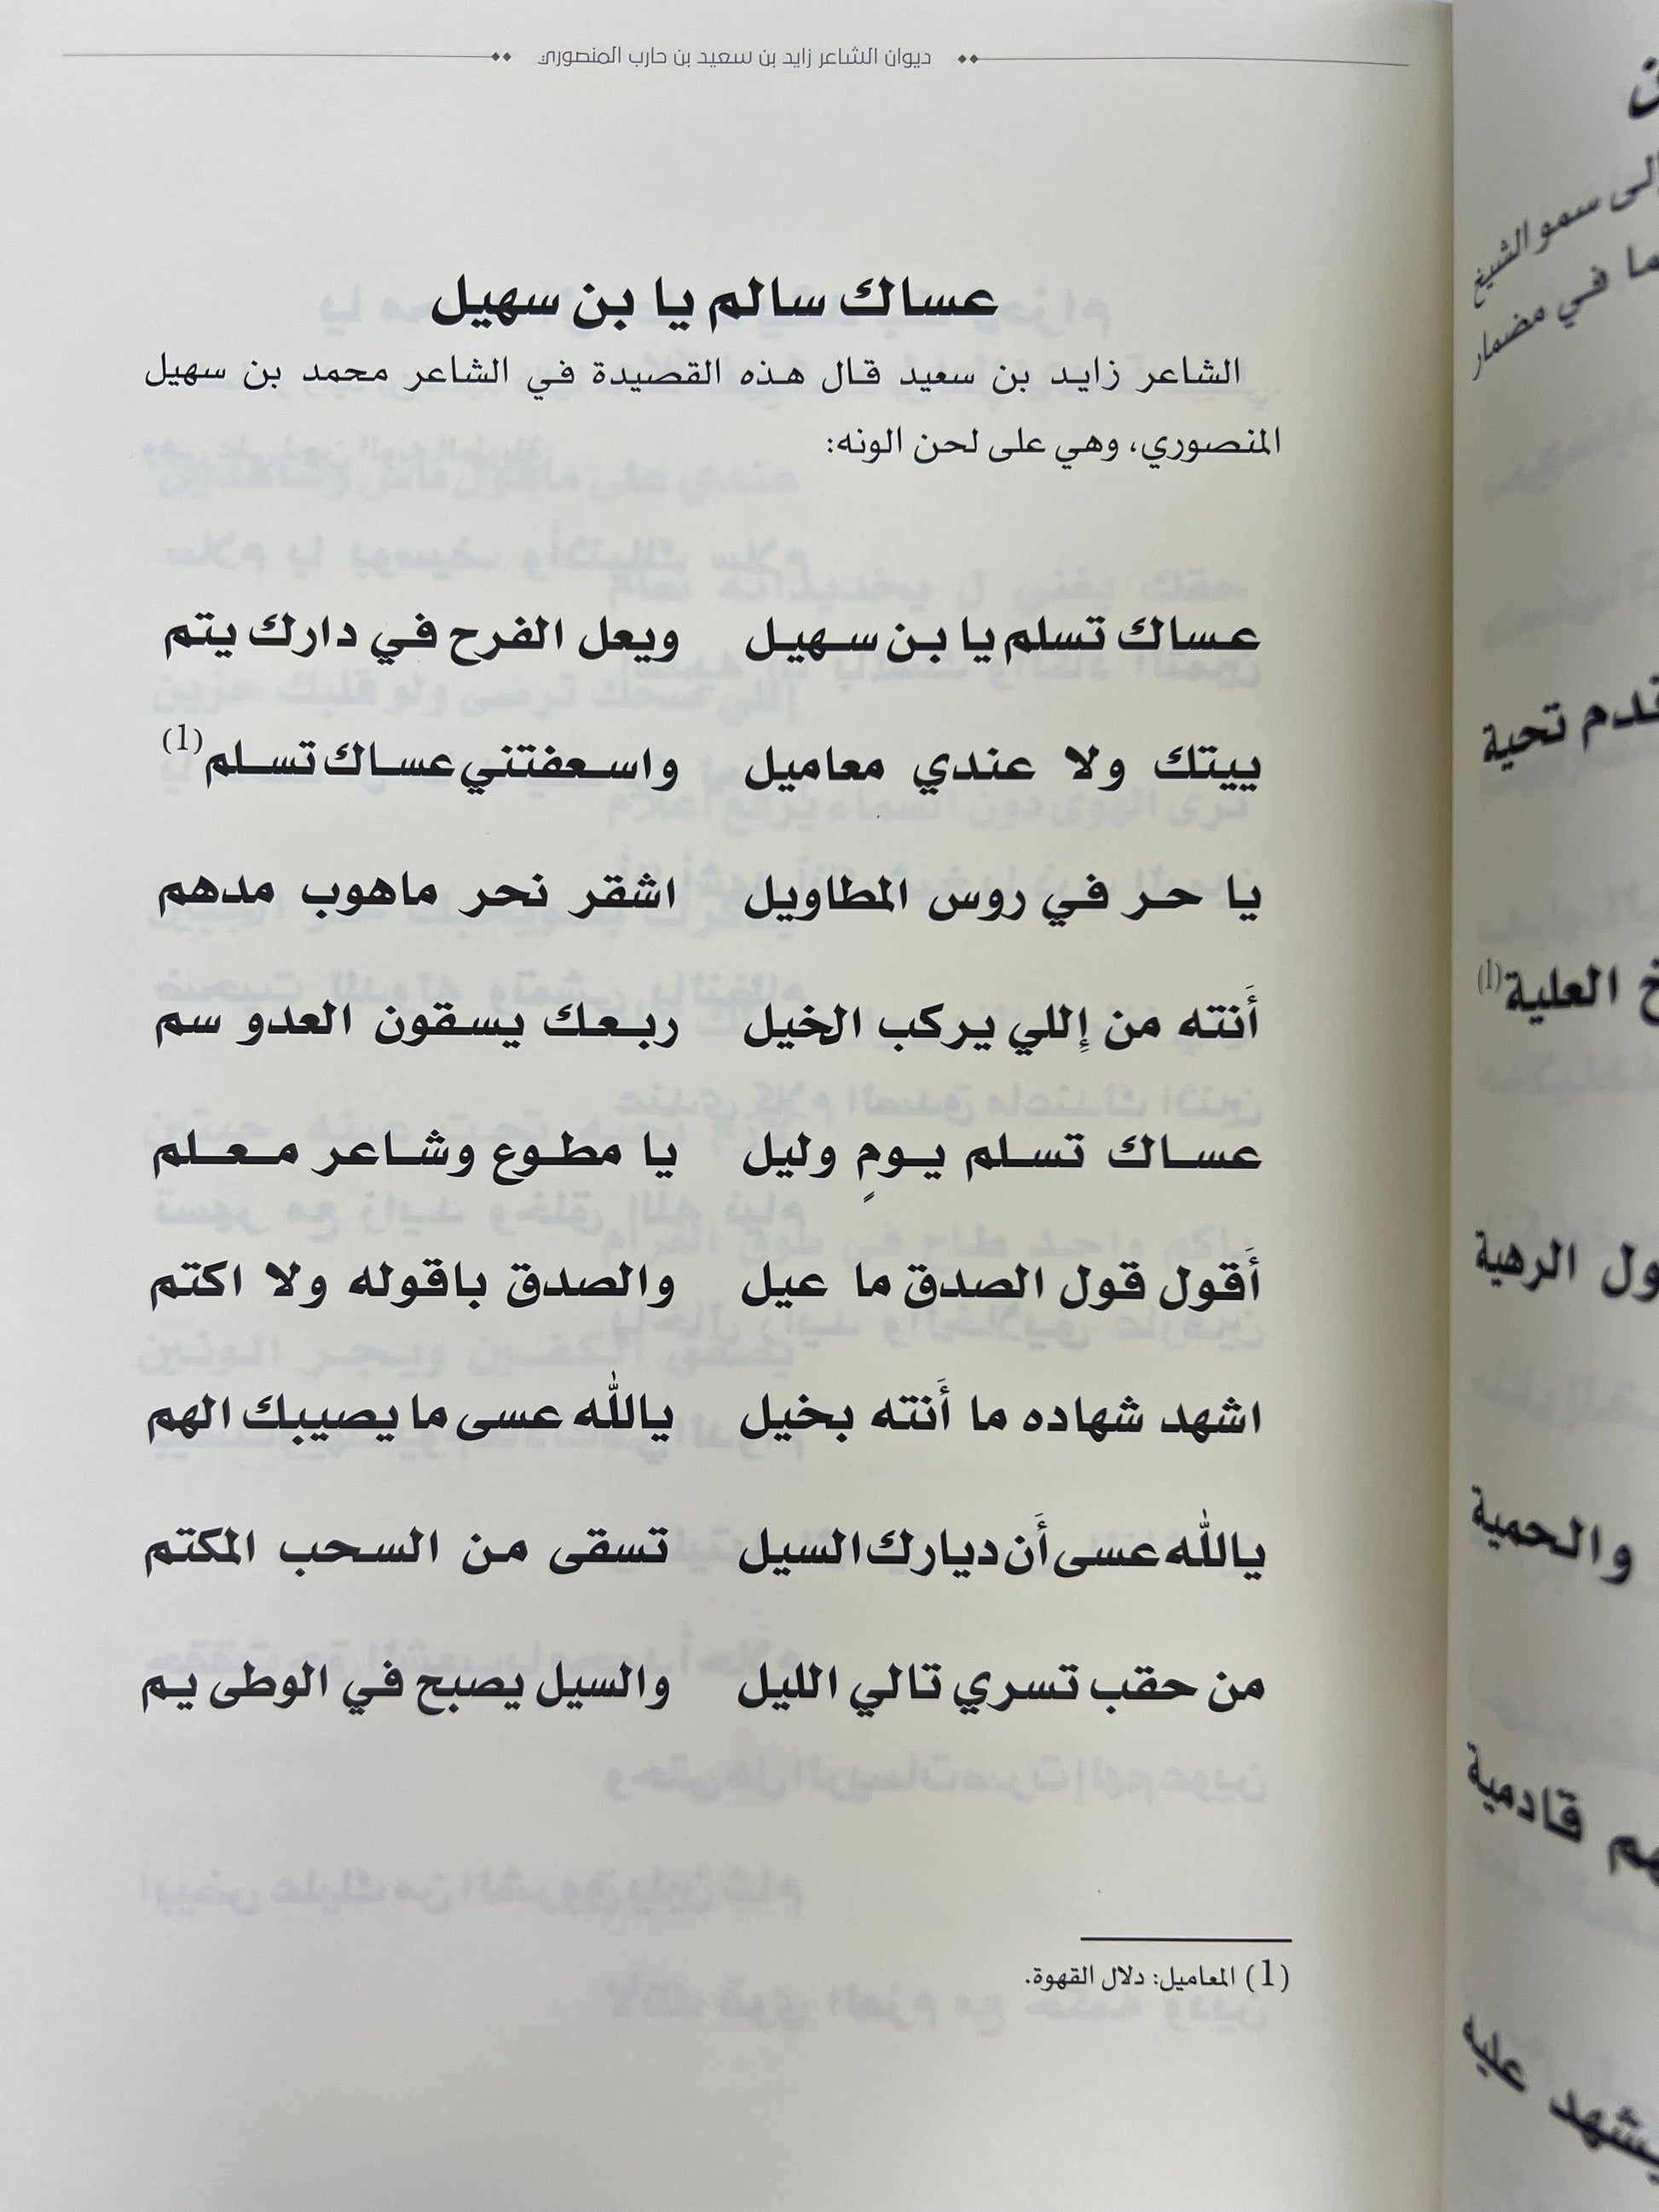 ديوان الشاعر زايد بن سعيد بن حارب المنصوري
عساك سالم يا بن سهيل
الشاعر زايد بن سعيد قال هذه القصيدة في الشاعر محمد بن سهيل
المنصوري، وهي على لحن الونه:
عساك تسلم يا بن سهيل ويعل الفرح في دارك يتم
ييتك ولا عندي معاميل واسعفتني عساك تسلم(1)
يا حر في روس المطاويل اشقر نحر ماهوب مدهم
أَنته من إِللي يركب الخيل ربعك يسقون العدو سم
عساك تسلم يومٍ وليل يا مطوع وشاعر معلم
أَقول قول الصدق ما عيل والصدق باقوله ولا اكتم
اشهد شهاده ما أَنته بخيل يالله عسى ما يصيبك الهم
يالله عسى أَن ديارك السيل تسقى من السحب المكتم
من حقب تسري تالي الليل والسيل يصبح في الوطى يم
(1) المعاميل: دلال القهوة.
إلى سمو الشيخ
ما في مضمار
تحية
العلية(1)
الرهية
والحمية
قادمية
يشهد عليه